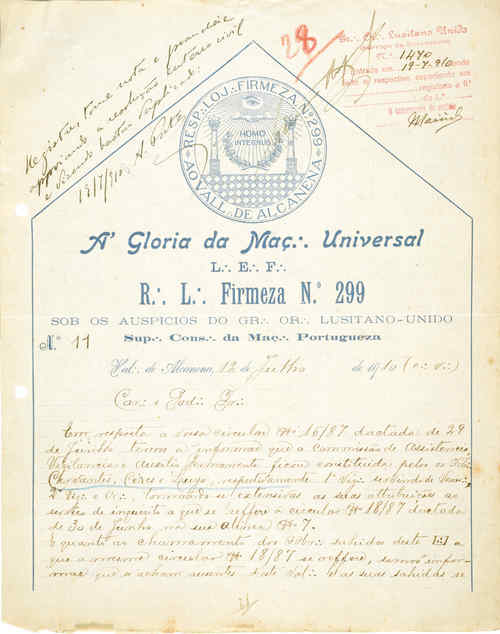 Registar, tome nota e
approvando a resolução civil
19/7/910. A. Pinto
28
Gr∴ Or∴ Lusitano Unido
N.º 1470
Entrada em 19-7-910
RESP∴ LOJ∴ FIRMEZA N.º 299
HOMO
INTEGRUS
AO VALL∴ DE ALCANENA
A' Gloria da Maç∴ Universal
L∴ E∴ F∴
R∴ L∴ Firmeza N.º 299
SOB OS AUSPICIOS DO GR∴ OR∴ LUSITANO-UNIDO
N.º 11 Sup∴ Cons∴ da Maç∴ Portugueza
Val∴ de Alcanena, 12 de Julho de 1910 (e∴ v∴)
Car∴ e Pod∴ Ir∴
Em resposta á vossa circular Nº 16/87 dactada de 29
de Junho temos a informar que a commissão de Assistencia,
Vigilancia e Auxilio permanente ficou constituida pelos
Cervantes, Ceres e Luso, respectivamente 1º Vig∴ servindo de Ven∴,
2º Vig∴ e Or∴, tornando-se extensivas as suas attribuições ao
de inquerito a que se refere a circular Nº 18/87 dactada
de 30 de Junho, na sua alinea Nº 7.
E quanto ao chamamento dos Obr∴ sahidos deste
que a mesma circular Nº 18/87 se refere, temos infor-
mar que se acham ausentes deste Val∴ e as suas sahidas se